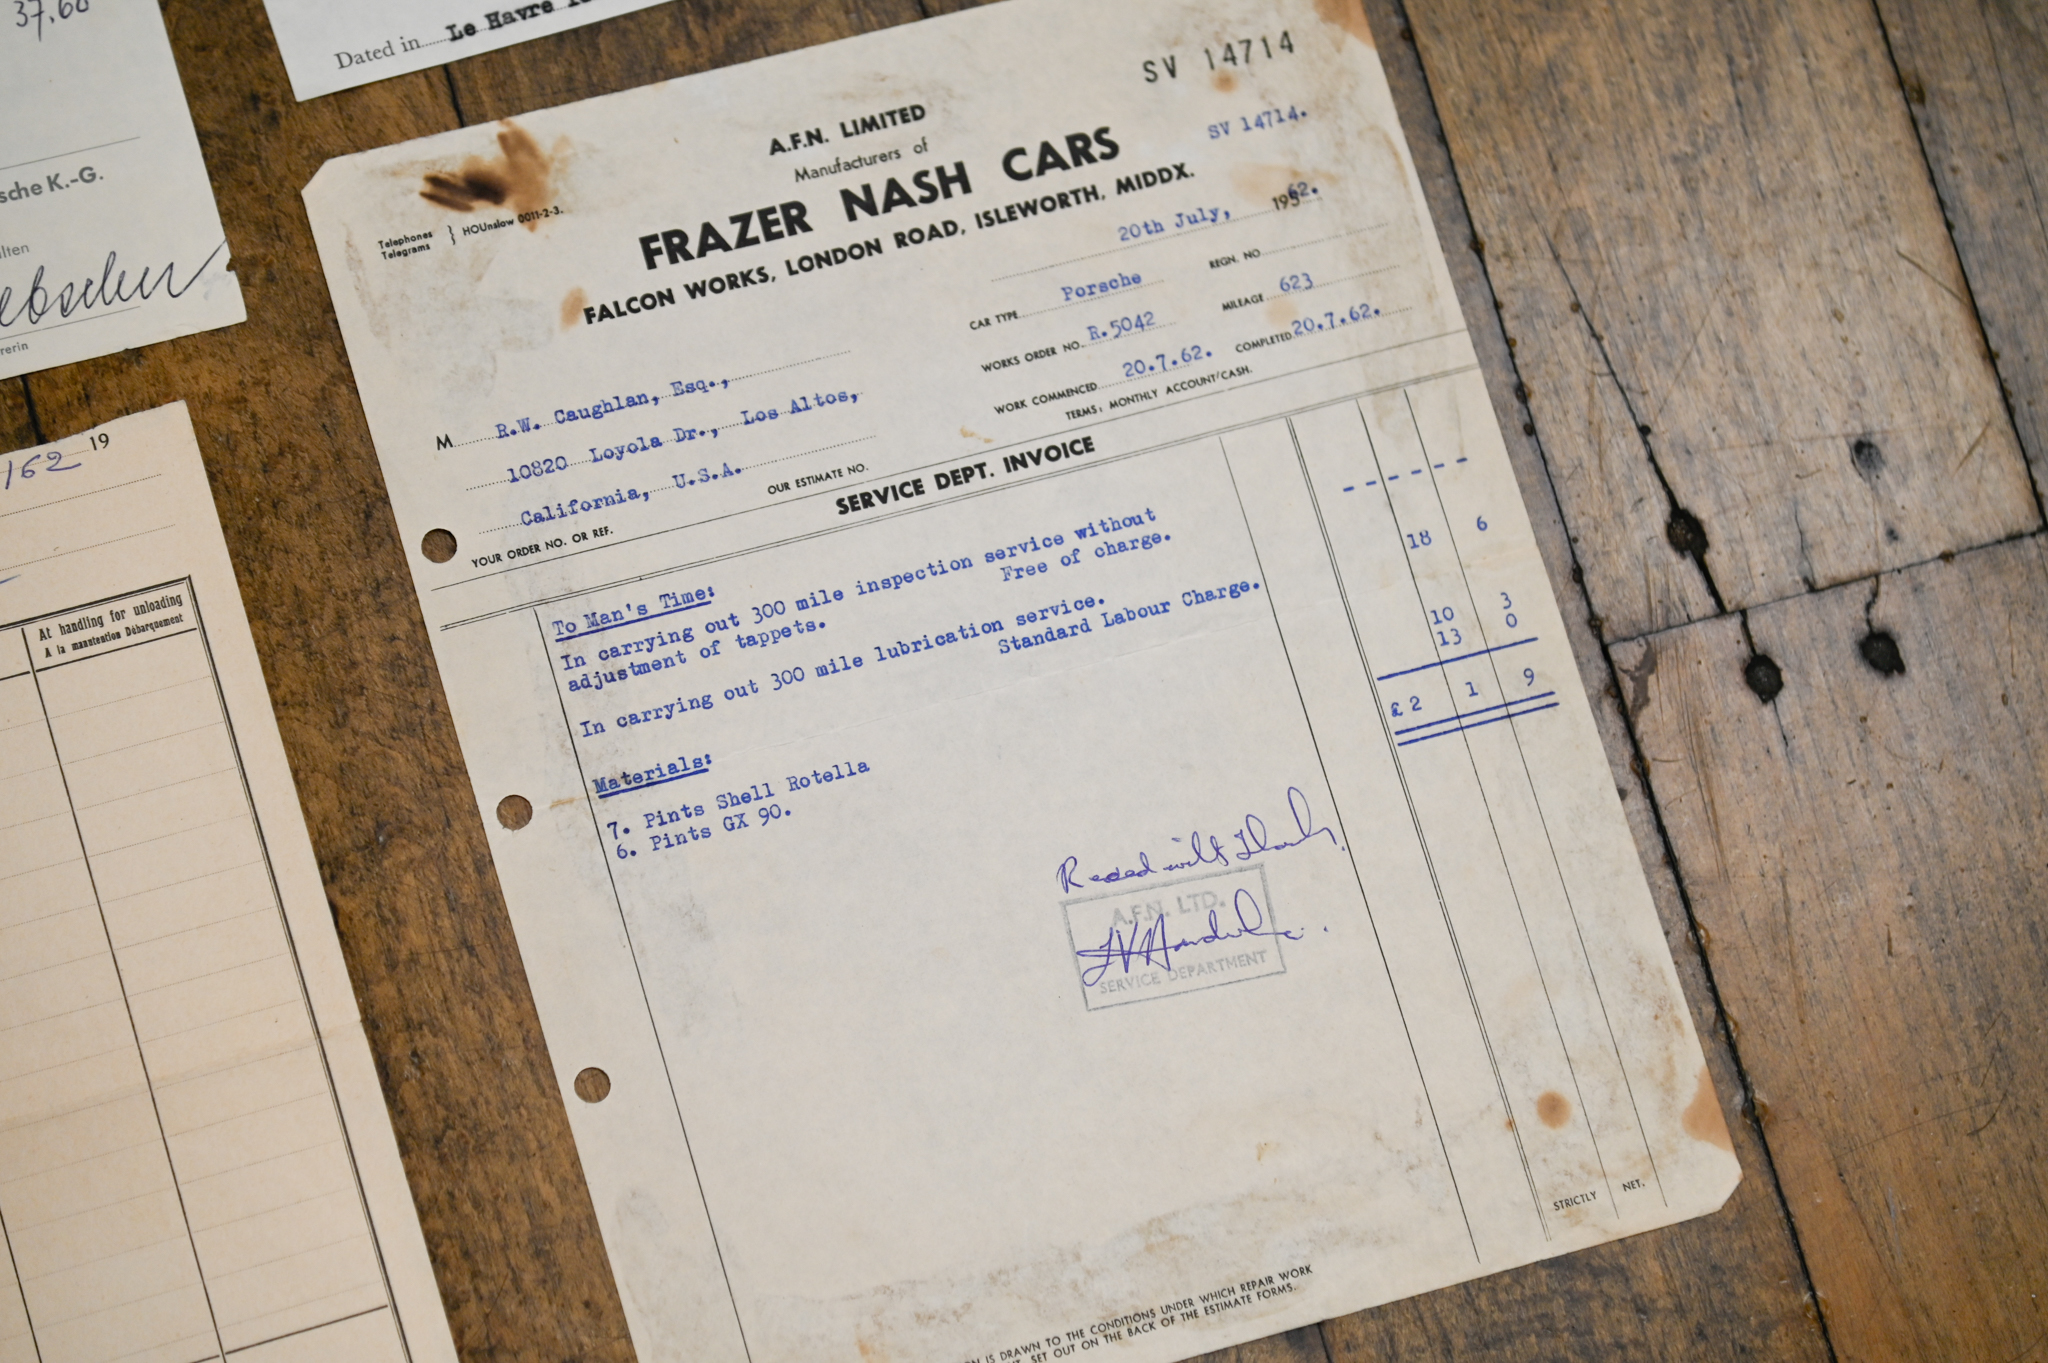 37.60
Dated in Le Havre
sche K.-G.
lten
rerin
162 19
At handling for unloading
A la manutention Débarquement
SV 14714
A.F.N. LIMITED
Manufacturers of
SV 14714.
FRAZER NASH CARS
FALCON WORKS, LONDON ROAD, ISLEWORTH, MIDDX.
Telephones } HOUnslow 0011-2-3.
Telegrams
20th July, 195 62.
CAR TYPE Porsche REGN. NO
WORKS ORDER NO. R.5042 MILEAGE 623
WORK COMMENCED 20.7.62. COMPLETED 20.7.62.
TERMS: MONTHLY ACCOUNT/CASH.
M R.W. Caughlan, Esq.,
10820 Loyola Dr., Los Altos,
California, U.S.A.
YOUR ORDER NO. OR REF. OUR ESTIMATE NO.
SERVICE DEPT. INVOICE
To Man's Time:
In carrying out 300 mile inspection service without
adjustment of tappets. Free of charge. - - - - - -
In carrying out 300 mile lubrication service.
Standard Labour Charge. 18 6
Materials:
7. Pints Shell Rotella 10 3
6. Pints GX 90. 13 0
£ 2 1 9
Received with Thanks.
A.F.N. LTD.
SERVICE DEPARTMENT
STRICTLY NET.
N IS DRAWN TO THE CONDITIONS UNDER WHICH REPAIR WORK
SET OUT ON THE BACK OF THE ESTIMATE FORMS.